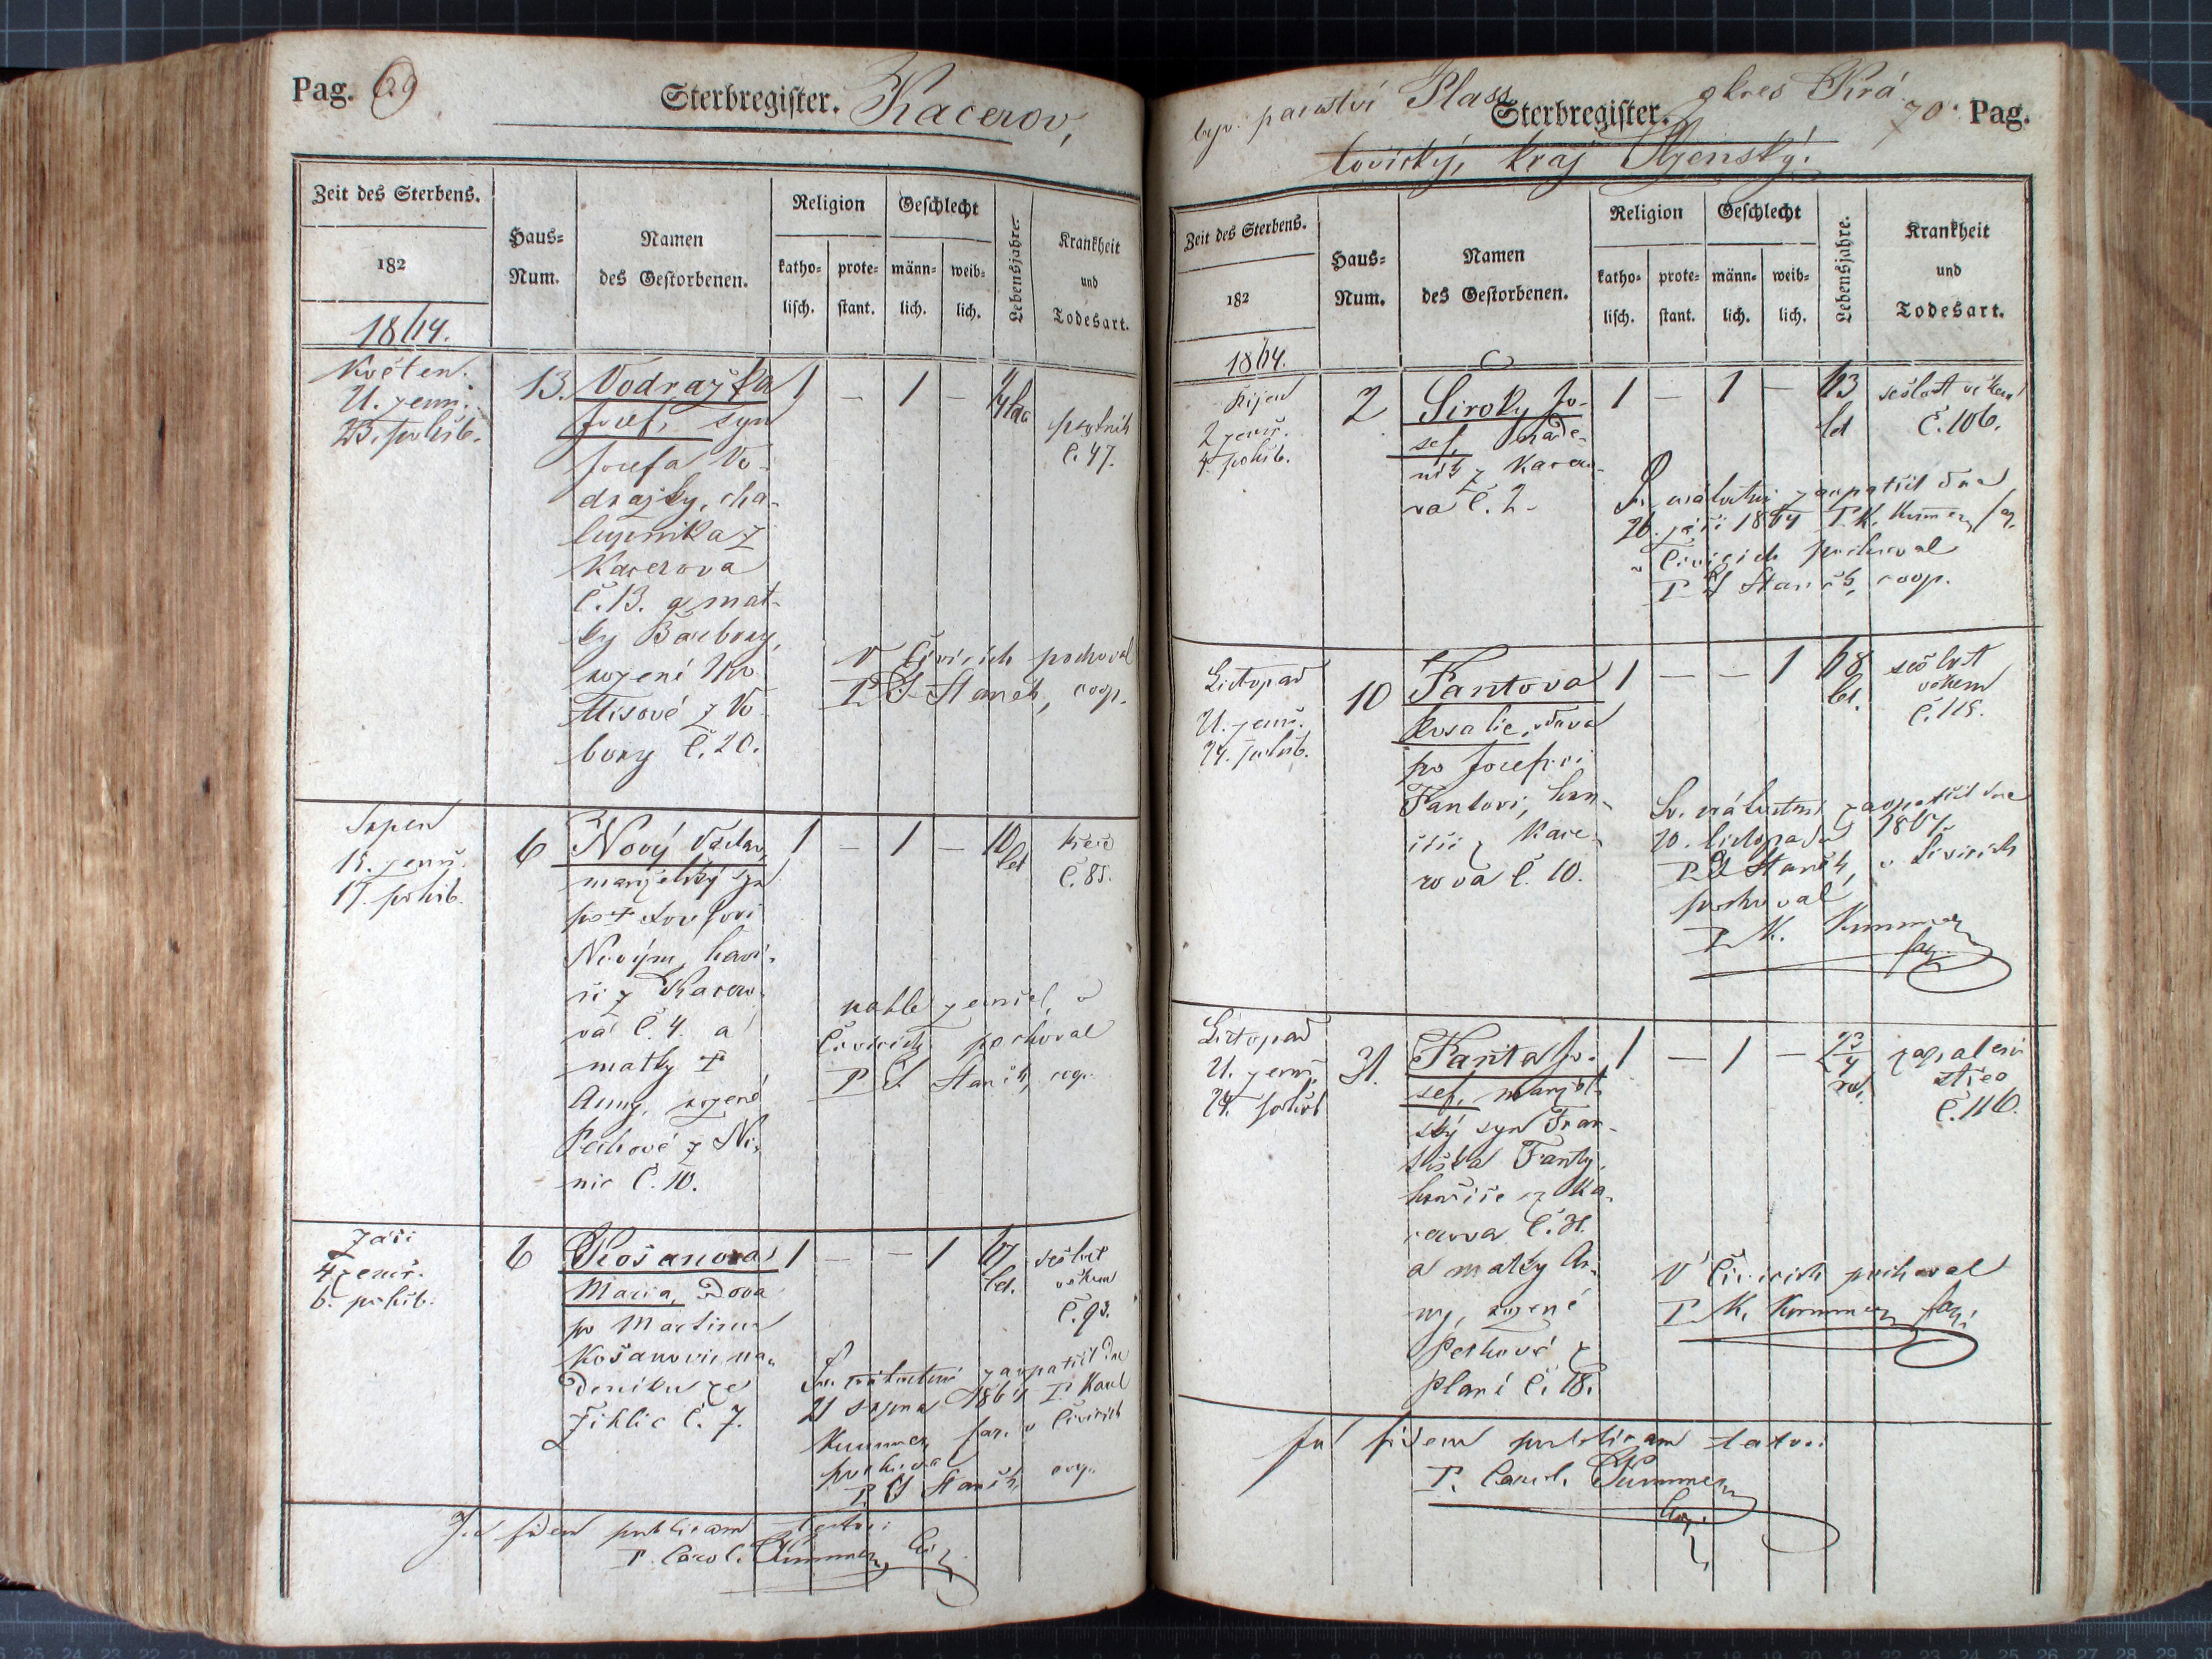 Pag. 69
Sterbregister. Kacerov,
Zeit des Sterbens.
182
1864.
Haus-
Num.
Namen
des Gestorbenen.
Religion
katho-
lisch.
prote-
stant.
Geschlecht
männ-
lich.
weib-
lich.
Lebensjahre.
Krankheit
und
Todesart.
Květen.
21. zemř.
23. pohřb.
13.
Vodražka
Josef, syn
Josefa Vo-
dražky, cha-
lupnika z
Kacerova
Č. 13. a mat-
ky Barbory,
rození
z Vo-
bory Č. 20.
1 — 1 —
psotník
č. 47.
V Čivicich pochoval
P J Staněk, coop.
Srpen
15. zemř.
17. pohřb.
6
Nový Václav,
manželský syn
po † Josefovi
Novým, haví-
ři z Kacero-
va Č. 4. a
matky †
Anny, rozené
Pechové z Ni-
nic Č. 10.
1 — 1 — 10
let
Č. 85.
nahle zemřel, v
Čivicich pochoval
P J Staněk, coop.
Září
4 zemř.
6. pohřb.
6
Košanova
Maria, vdova
po Martinu
Košanovi, na-
deníku ze
Žihlic č. 7.
1 — — 1 67
let.
sešlost
věkem
Č. 93.
Sv. svátostmi zaopatřil dne
21 srpna 1864 P. Karel
Kummer, far. v Čivicich
pochoval
P. J Staněk, coop.
In fidem publicam testor:
P. Carol. Kummer
býv. panství Plass
okres Kra-
Sterbregister.
70. Pag.
lovický, kraj Plzenský.
Zeit des Sterbens.
182
1864.
Haus-
Num.
Namen
des Gestorbenen.
Religion
katho-
lisch.
prote-
stant.
Geschlecht
männ-
lich.
weib-
lich.
Lebensjahre.
Krankheit
und
Todesart.
Říjen
2 zemř.
4. pohřb.
2
Siroky Jo-
sef, nade-
ník z Kacero-
va Č. 2.
1 — 1 — 63
let
sešlost věkem
Č. 106.
Sv. svátostmi zaopatřil dne
26. září 1864 P. K. Kummer, far.
v Čivicich pochoval
P J Staněk, coop.
Listopad
21. zemř.
24. pohřb.
10
Fantova
Rosalie, vdova
po Josefovi
Fantovi, hav-
íři z Kace-
rova č. 10.
1 — — 1 68
let.
sešlost
věkem
č. 115.
Sv. svátostmi zaopatřil dne
20. listopadu 1864
P J Staněk, v Čivicich
pochoval
P K. Kummer
far.
Listopad
21. zemř.
24. pohřb.
31.
Fanta Jo-
sef, manžel-
ský syn Fran-
tiška Fanty,
havíře z Ka-
cerova Č. 31.
a matky An-
ny, rozené
Pechové z
Planí č. 18.
1 — 1 — 2 3/4
rok.
zapalení
střev
Č. 116.
V Čivicich pochoval
P K. Kummer far.
In fidem publicam testor:
P. Carol. Kummer